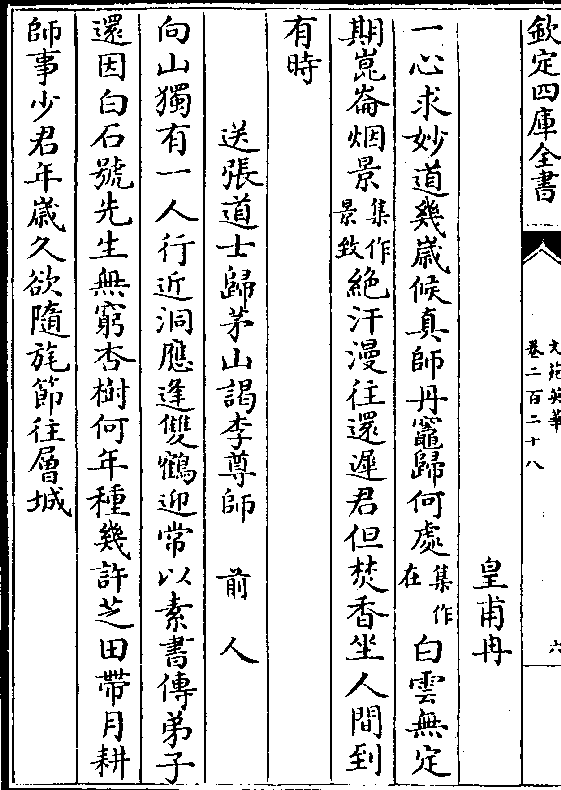 欽定四庫全書
文苑英華
卷二百二十八
六
皇甫冉
一心求妙道幾歲候真師丹竈歸何處集作在白雲無定
期崑崙烟景集作景致絶汗漫往還遲君但焚香坐人間到
有時
送張道士歸茅山謁李尊師 前人
向山獨有一人行近洞應逢雙鶴迎常以素書傳弟子
還因白石號先生無窮杏樹何年種幾許芝田帶月耕
師事少君年歲久欲隨旄節往層城